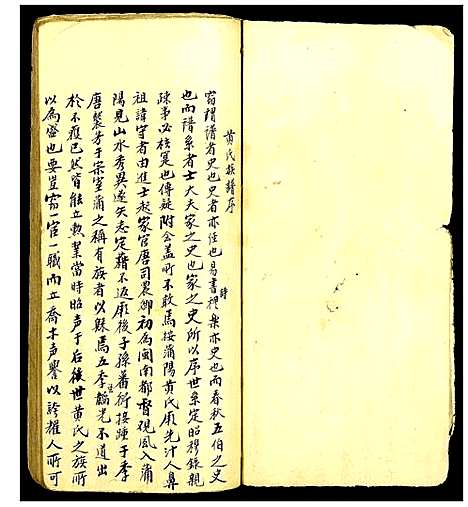 黄氏族譜序
窃謂譜者史也史者亦任也易書詩禮樂亦史也而春秋五伯之史
也而譜系者士大夫家之史也家之史所以序世系定昭穆錄親
疎事必核寔也傳疑附会盖所不敢焉按蒲陽黄氏厥先汁人鼻
祖諱守者由進士起家官唐司農御初為闽南都督观风入蒲
陽見山水秀異遂矢志定藉不返厥後子孫蕃衍接踵于季
唐襲芳于宋室蒲之称有族者以縣焉五季韜光不道出
於不癯已然皆能立勲業當時昭声于后後世黄氏之族所
以為盛也要豈窃一官一職而立喬木声譽以誇耀人所可